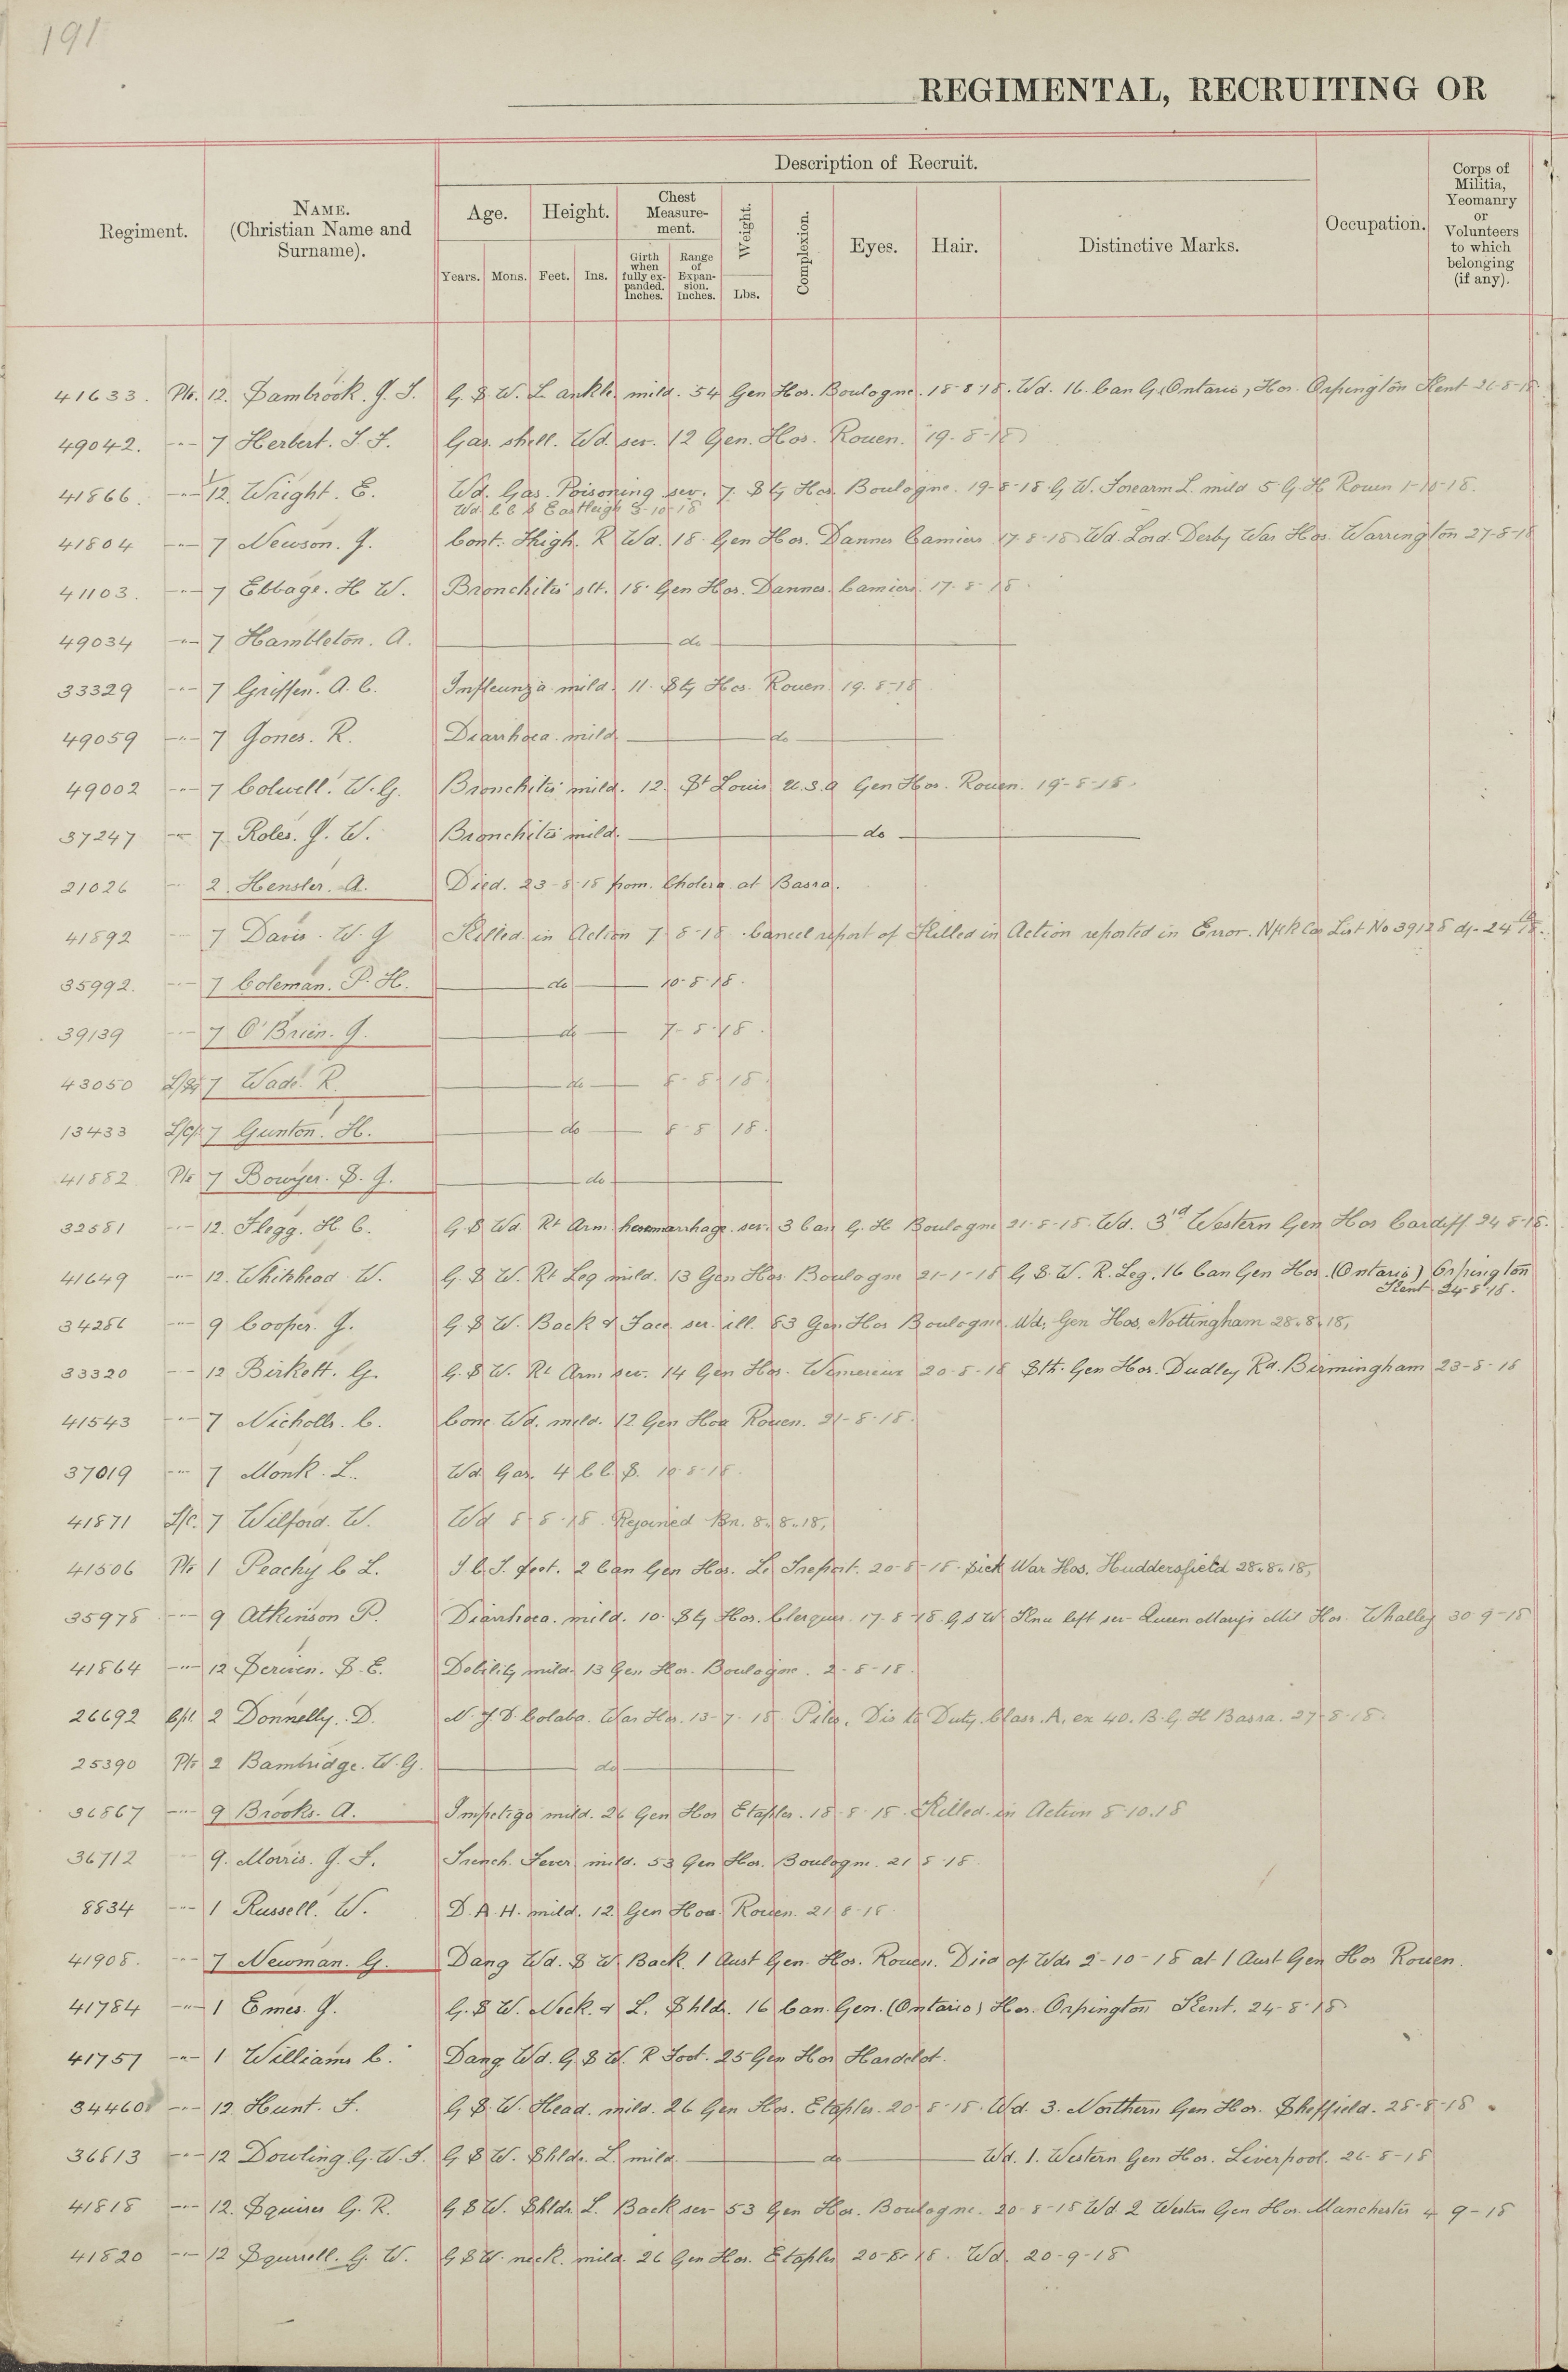 191
REGIMENTAL, RECRUITING OR
Regiment.
NAME.
(Christian Name and
Surname).
Description of Recruit.
Age.
Height.
Chest
Measure-
ment.
Weight.
Complexion.
Eyes.
Hair.
Distinctive Marks.
Occupation.
Corps of
Militia,
Yeomanry
or
Volunteers
to which
belonging
(if any).
Years.
Mons.
Feet.
Ins.
Girth
when
fully ex-
panded.
Inches.
Range
of
Expan-
sion.
Inches.
Lbs.
41633. Pte. 12. Sambrook. J. T. G. S. W. L ankle mild. 54 Gen Hos. Boulogne. 18-8-18. Wd. 16. Can G. (Ontario) Hos. Orpington Kent 26-8-18.
49042. 7 Herbert. J. J. Gas. shell. Wd. sev. 12 Gen. Hos. Rouen. 19-8-18
41866. 12. Wright. E. Wd. Gas. Poisoning sev. 7. Sty Hos. Boulogne. 19-8-18. G W. Forearm L. mild 5 G. H Rouen 1-10-18.
Wd. C C S Eastleigh 3-10-18
41804 7 Newson. J. Cont. Thigh. R Wd. 18. Gen Hos. Dannes Camiers 17-8-18 Wd. Lord Derby War Hos. Warrington 27-8-18
41103. 7 Ebbage. H W. Bronchitis slt. 18. Gen Hos. Dannes. Camiers. 17-8-18.
49034 7 Hambleton. A. do
33329 7 Griffen. A. C. Influenza mild. 11. Sty Hos. Rouen 19-8-18
49059 7 Jones. R. Diarrhoea mild do
49002 7 Colwell. W. G. Bronchitis mild. 12. St Louis U.S.A Gen Hos. Rouen. 19-8-18.
37247 7. Roles. J. W. Bronchitis mild. do
21026 2. Hensler. A. Died. 23-8-18 from. Cholera at Basra.
41892 7 Davis. W. J Killed in Action 7-8-18. Cancel report of Killed in Action reported in Error. List No 39128 24
35992. 7 Coleman. P. H. do 10-8-18.
39139 7 O'Brien. J. do 7-8-18.
43050 7 Wade. R. do 8-8-18
13433 L/Cpl 7 Gunton. H. do 8-8-18.
41882 Pte 7 Bowyer. S. J. do
32581 12. Flegg. H. C. G. S Wd Rt Arm hemmarrhage. sev. 3 Can G. H Boulogne 21-8-18. Wd. 3rd Western Gen Hos Cardiff 24-8-18.
41649 12. Whitehead. W. G. S W. Rt Leg mild. 13 Gen Hos. Boulogne 21-1-18 G. S. W. R. Leg. 16 Can Gen Hos. (Ontario) Orpington
Kent 24-8-18.
34286 9 Cooper. J. G. S W. Back & Face. sev. ill. 83 Gen Hos Boulogne. Wd. Gen Hos. Nottingham 28.8.18,
33320 12 Birkett. G. G. S W. Rt Arm sev. 14 Gen Hos. Wimereux 20-8-18 Sth. Gen Hos. Dudley Rd. Birmingham 23-8-18
41543 7 Nicholls. C. Conc. Wd. mild. 12. Gen Hos Rouen. 21-8-18.
37019 7 Monk. L. Wd Gas. 4 C C. S. 10-8-18.
41871 L/C. 7 Wilford. W. Wd 8-8-18. Rejoined Bn. 8.8.18,
41506 Pte 1 Peachy C L. I. C. T. foot. 2 Can Gen Hos. Le Treport. 20-8-18. Sick War Hos. Huddersfield 28.8.18,
35978 9 Atkinson P. Diarrhoea mild. 10. Sty Hos. 17-8-18. G S W Knee left sev. Queen Mary's Mil Hos. Whalley 30-9-18
41864 12 S. E. Debility mild. 13 Gen Hos. Boulogne. 2-8-18.
26692 Cpl 2 Donnelly. D. N. Y. D. Colaba. War Hos. 13-7-18. Piles. Dis to Duty. Class. A, ex 40. B. G. H Basra. 27-8-18.
25390 Pte 2 Bambridge. W. G. do
36867 9 Brooks. A. Impetigo mild. 26 Gen Hos Etaples. 18-8-18. Killed. in Action 8.10.18
36712 9. Morris. J. F. Trench. Fever mild. 53 Gen Hos. Boulogne. 21-8-18.
8834 1 Russell. W. D. A. H. mild. 12. Gen Hos. Rouen. 21-8-18.
41908. 7 Newman. G. Dang Wd. S W. Back. 1 Aust Gen. Hos. Rouen. Died of Wds 2-10-18 at 1 Aust Gen Hos Rouen.
41784 1 Emes. J. G. S W. Neck. & L. Shldr. 16 Can. Gen. (Ontario) Hos. Orpington Kent. 24-8-18
41757 1 Williams C. Dang. Wd. G S W. R Foot. 25 Gen Hos Hardelot.
34460 12. Hunt. F. G. S. W. Head. mild. 26 Gen Hos. Etaples. 20-8-18. Wd. 3. Northern Gen Hos. Sheffield. 28-8-18.
36813 12 Dowling. G. W. J. G S W. Shldr. L. mild. do Wd. 1. Western Gen Hos. Liverpool. 26-8-18
41818 12. Squires G. R. G S W. Shldr L. Back sev 53 Gen Hos. Boulogne. 20-8-18 Wd. 2 Westrn Gen Hos. Manchester 4-9-18
41820 12 Squirrell. G. W. G S W. neck. mild. 26 Gen Hos. Etaples 20-8-18. Wd. 20-9-18